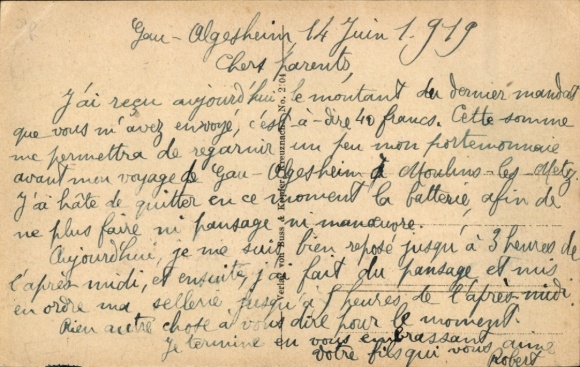 Gau-Algesheim 14 Juin 1919
Chers parents,
J'ai reçu aujourd'hui le montant du dernier mandat
que vous m'avez envoyé, c'est-à-dire 40 francs. Cette somme
me permettra de regarnir un peu mon portemonnaie
avant mon voyage de Gau-Algesheim à Moulins-les-Metz.
J'ai hâte de quitter en ce moment la batterie, afin de
ne plus faire ni pansage ni manœuvre.
Aujourd'hui, je me suis bien reposé jusqu'à 3 heures de
l'après-midi, et ensuite, j'ai fait du pansage et mis
en ordre ma sellerie jusqu'à heures, de l'après-midi.
Rien autre chose a vous dire pour le moment.
Je termine en vous embrassant
votre fils qui vous aime
Robert
Verlag von Buss & Kreuznach No. 2:04